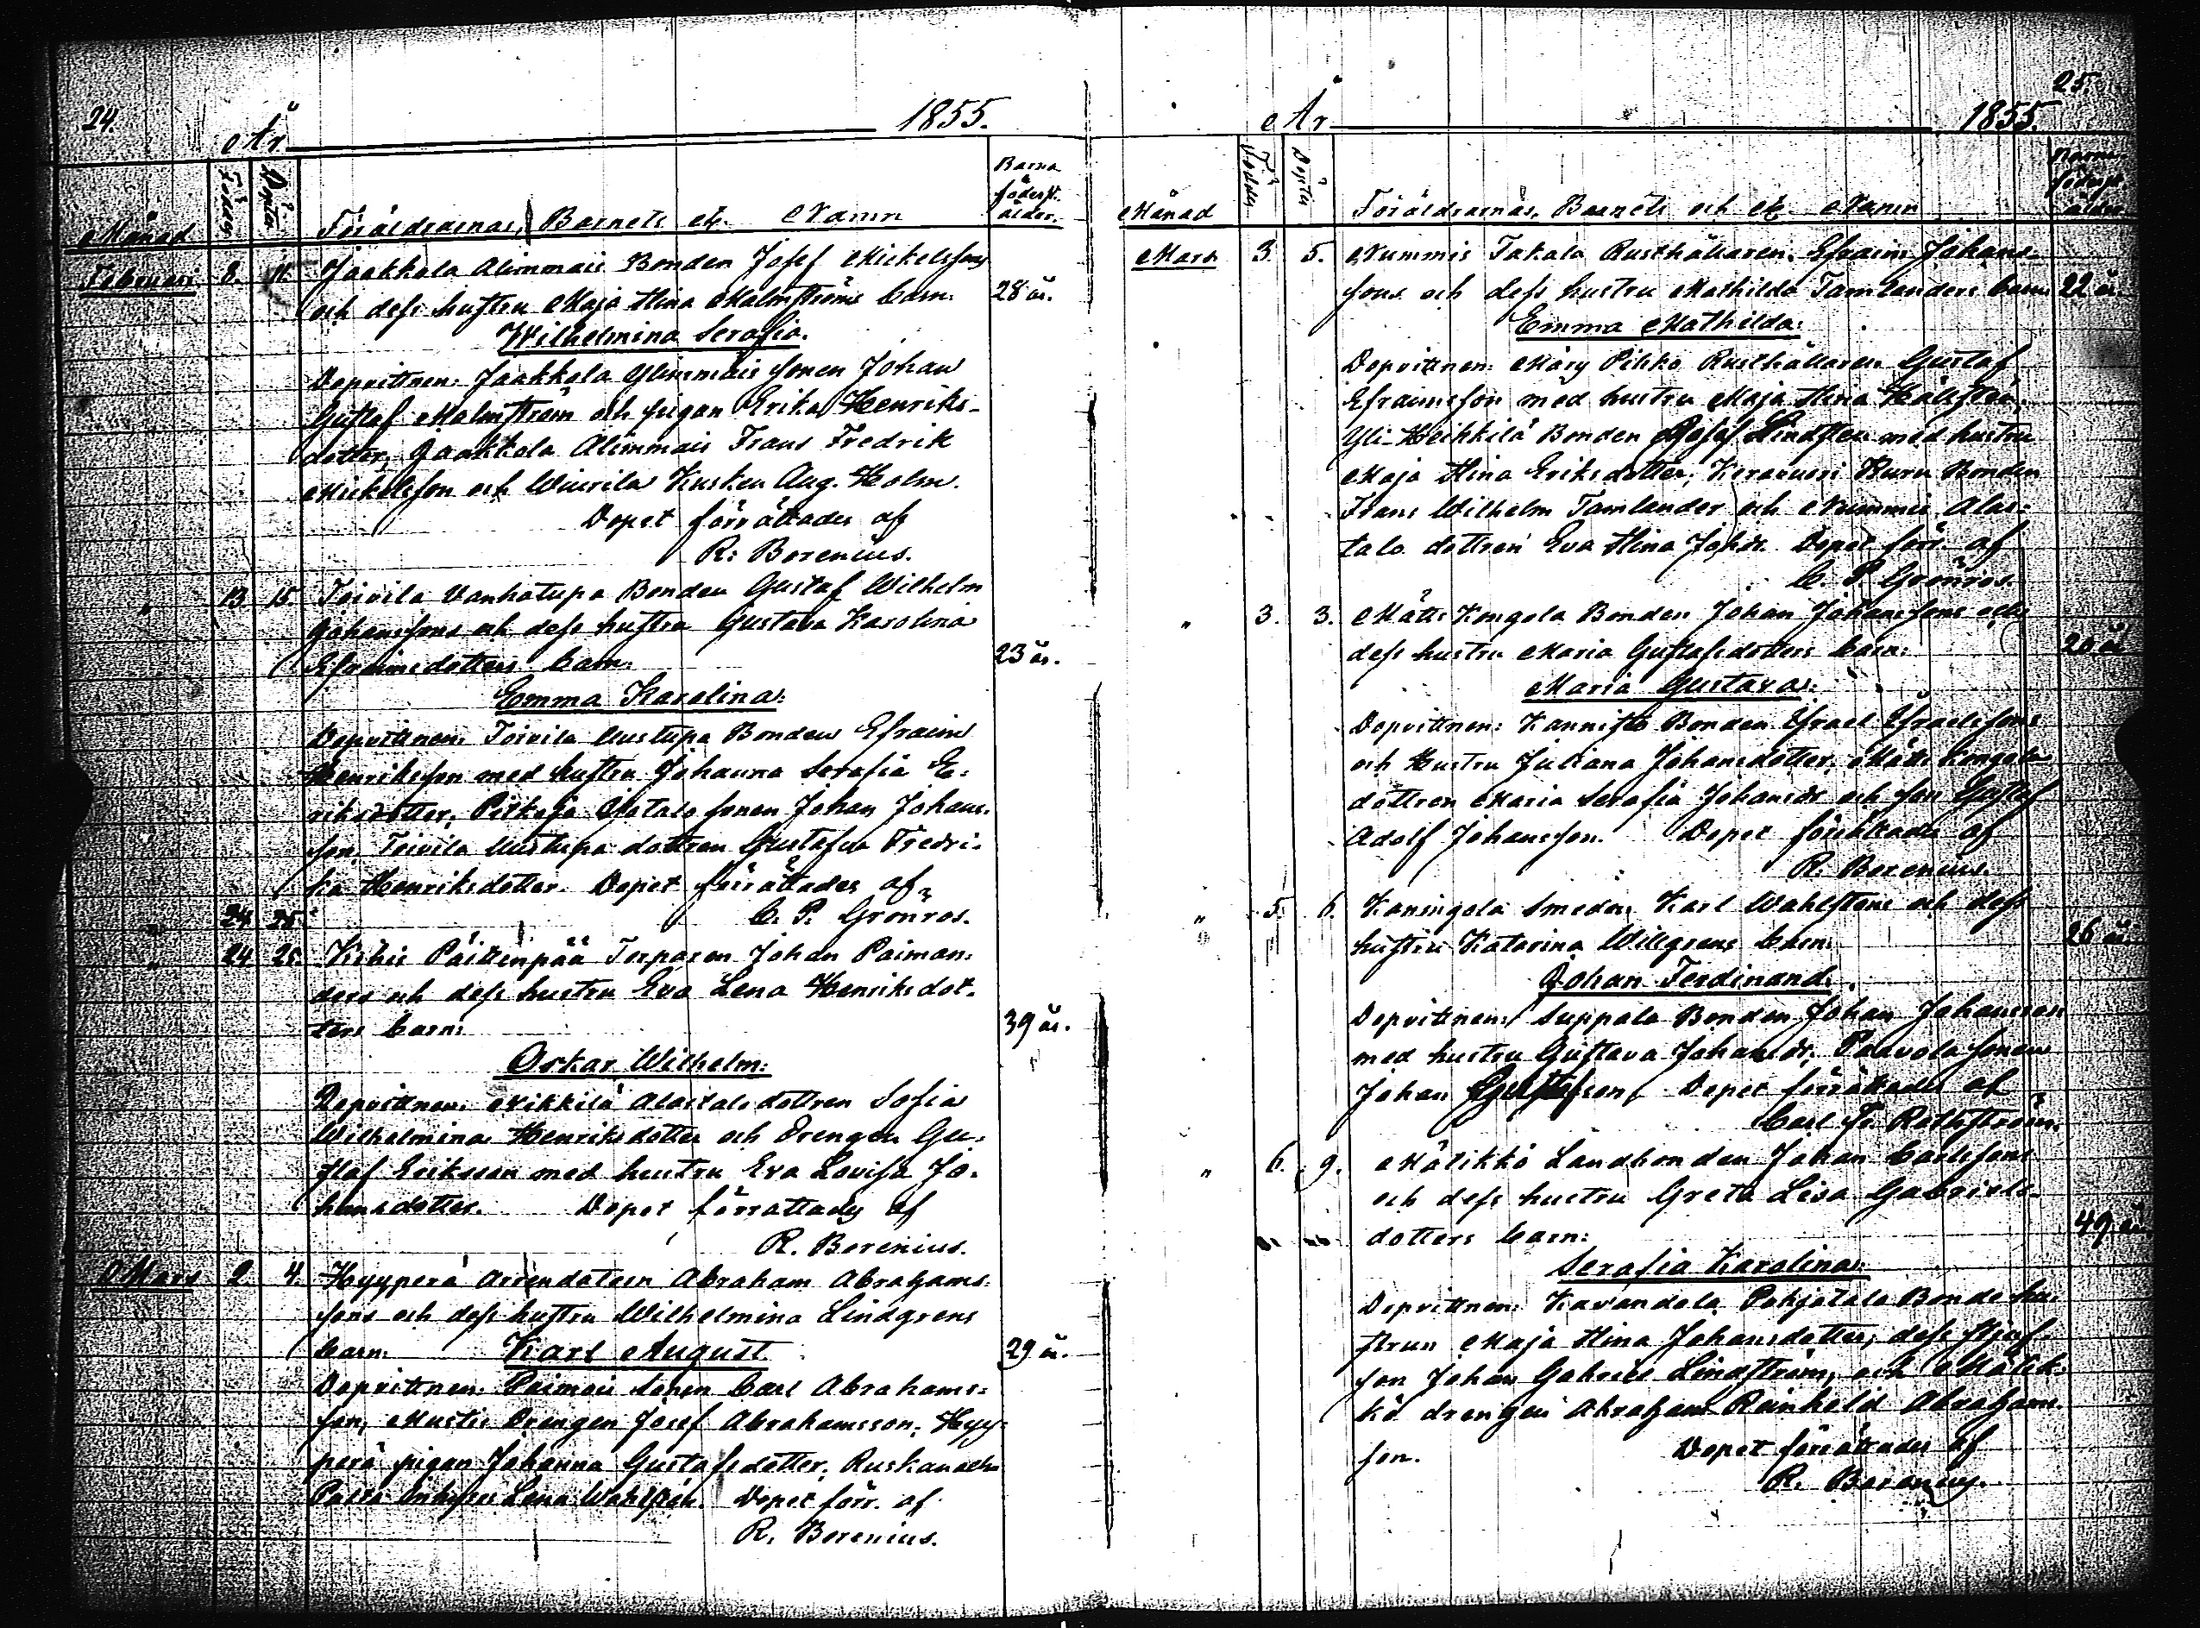 24.
År 1855.
Månad Födda Döpta Föräldrarnas, Barnets etc. Namn Barnaföderst. ålder.
Februari 8. 11. Jaakkola Alimmais Bonden Josef Mickelssons
och dess hustru Maja Stina Malmströms barn: 28 år.
Wilhelmina Serafia.
Dopvittnen: Jaakkola Ylimmäis sonen Johan
Gustaf Malmström och pigan Erika Henriks-
dotter, Jaakkola Alimmais Frans Fredrik
Mickelsson och Wiurila Kusken Aug. Holm.
Dopet förrättades af
R: Borenius.
" 13 15. Toivila Vanhatupa Bonden Gustaf Wilhelm
Johanssons och dess hustru Gustava Karolina
Efraimsdotters barn: 23 år.
Emma Karolina:
Dopvittnen: Toivila Uustupa Bonden Efraim
Henriksson med hustru Johanna Serafia E-
riksdotter, Pitkäjä Isotalo sonen Johan Johans-
son, Toivila Uustupa dottren Gustafva Fredri-
ka Henriksdotter. Dopet förrättades af
" 24 25. C. P. Grönros.
" 24 25. Kirhis Päittinpää Torparen Johan Paiman-
ders och dess hustru Eva Lena Henriksdot-
ters barn: 39 år.
Oskar Wilhelm:
Dopvittnen: Nikkilä Alastalo dottren Sofia
Wilhelmina Henriksdotter och Drengen Gu-
staf Eriksson med hustru Eva Lovisa Jo-
hansdotter. Dopet förrättades af
R. Borenius.
Mars 2 4. Hyyperä Arrendatorn Abraham Abrahams-
sons och dess hustru Wilhelmina Lindgrens
barn: Karl August. 29 år.
Dopvittnen: Paimais sonen Carl Abrahams-
son, Mustis Drengen Josef Abrahamsson, Hyy-
perä pigan Johanna Gustafsdotter, Ruskanaho
Lena Dopet förr. af
R. Borenius.
25.
År 1855.
Månad Födda Döpta Föräldrarnas, Barnets och etc. Namn Barnaföderst. ålder
Mars 3. 5. Nummis Takala Rusthållaren Efraim Johans-
sons och dess hustru Mathilda Tamlanders barn 22 år
Emma Mathilda:
Dopvittnen: Märy Pikko Rusthållaren Gustaf
Efraimsson med hustru Maja Stina Hällstén,
Yli-Heikkilä Bonden Josef Lindsten med hustru
Maja Stina Eriksdotter, Keravuori Buru Bonden
Frans Wilhelm Tamlander och Nummis Alas-
talo dottren Eva Stina Johdr. Dopet förr. af
C. P. Grönros.
" 3. 3. Mätts Kongola Bonden Johan Johanssons och
dess hustru Maria Gustafsdotters barn: 20 år
Maria Gustava:
Dopvittnen: Kannisto Bonden Israel Israelsson
och Hustru Juliana Johansdotter, Mätts Kongola
dottren Maria Serafia Johansdr och son Gustaf
Adolf Johansson. Dopet förrättades af
R. Borenius.
" 5. 6. Kaningola Smeden Karl Wahlstens och dess
hustru Katarina Willgrens barn: 26 år.
Johan Ferdinand.
Dopvittnen: Suppala Bonden Johan Johansson
med hustru Gustava Johansdr, Paavola sonen
Johan Gustafsson, Dopet förrättades af
Carl Fr. Rothström.
" 6. 9. Mälikkö Landbonden Johan Carlssons
och dess hustru Greta Lisa Gabriels-
dotters barn: 49 år
Serafia Karolina:
Dopvittnen: Kavandola Pohjatalo Bondehu-
strun Maja Stina Johansdotter, dess stjuf-
son Johan Gabriel Lindström, och Mälik-
kö drengen Abraham Reinhold Abraham-
son. Dopet förrättades af
R. Borenius.